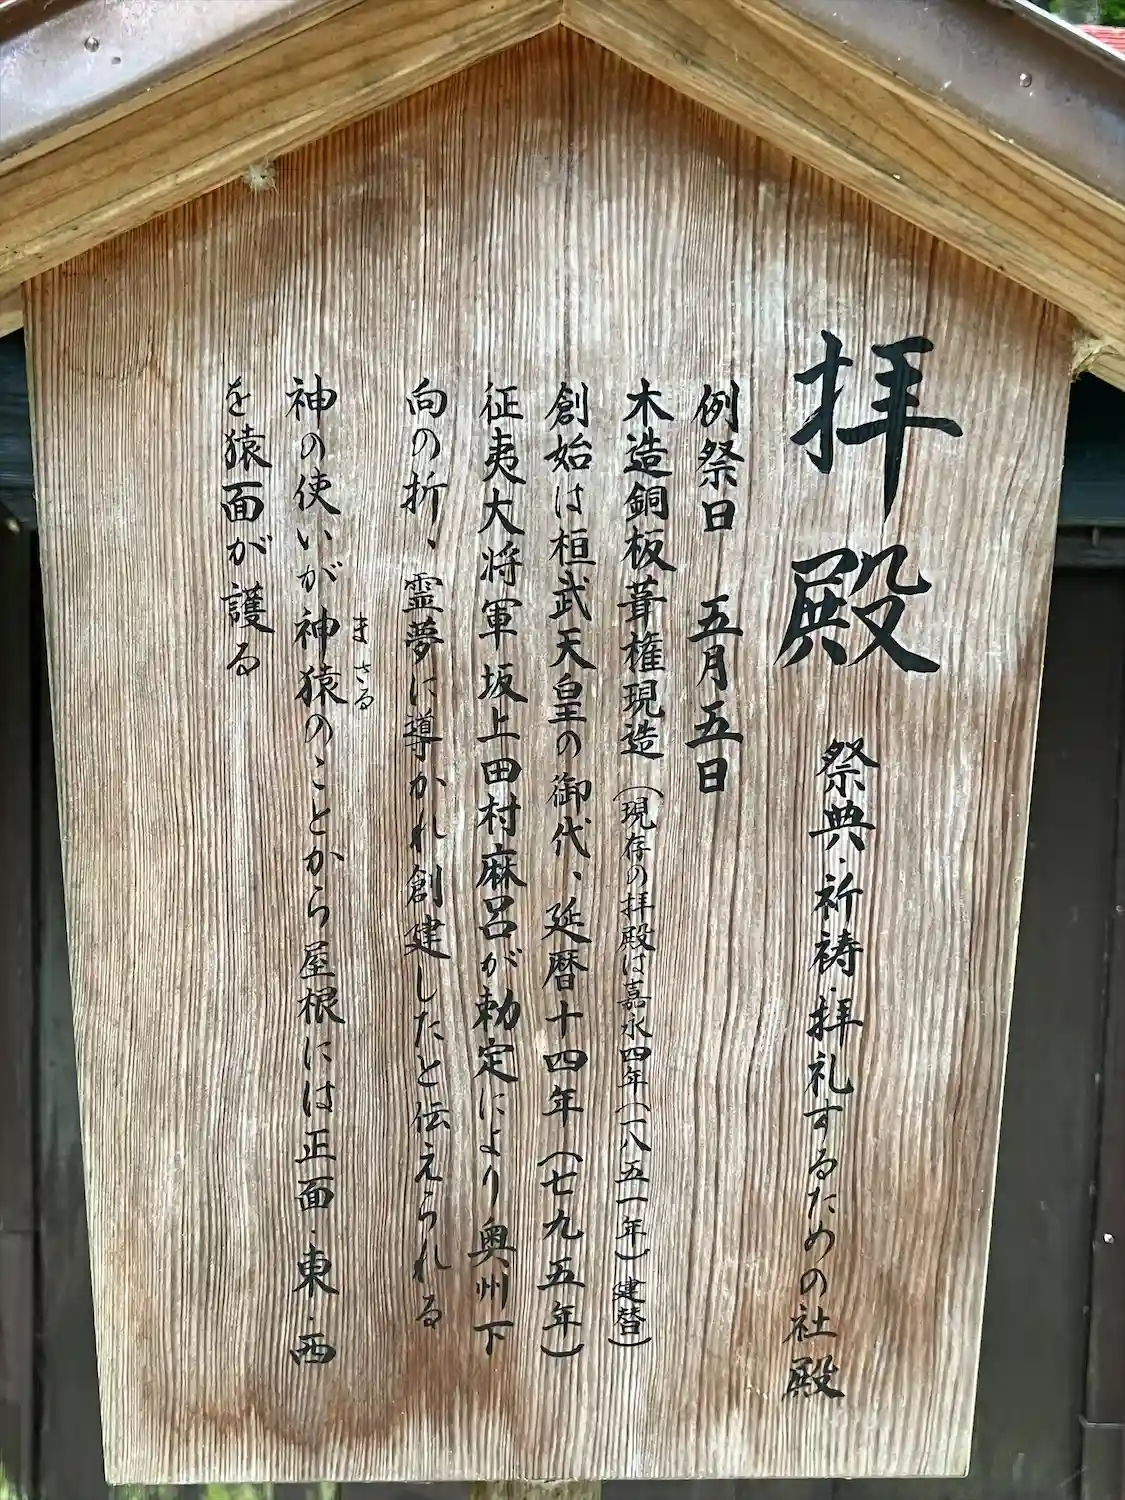 拝殿 祭典・祈祷・拝礼するための社殿
例祭日 五月五日
木造銅板葺権現造(現存の拝殿は嘉永四年(一八五一年)建替)
創始は桓武天皇の御代、延暦十四年(七九五年)
征夷大将軍坂上田村麻呂が勅定により奥州下
向の折、霊夢に導かれ創建したと伝えられる
まさる
神の使いが神猿のことから屋根には正面・東・西
を猿面が護る